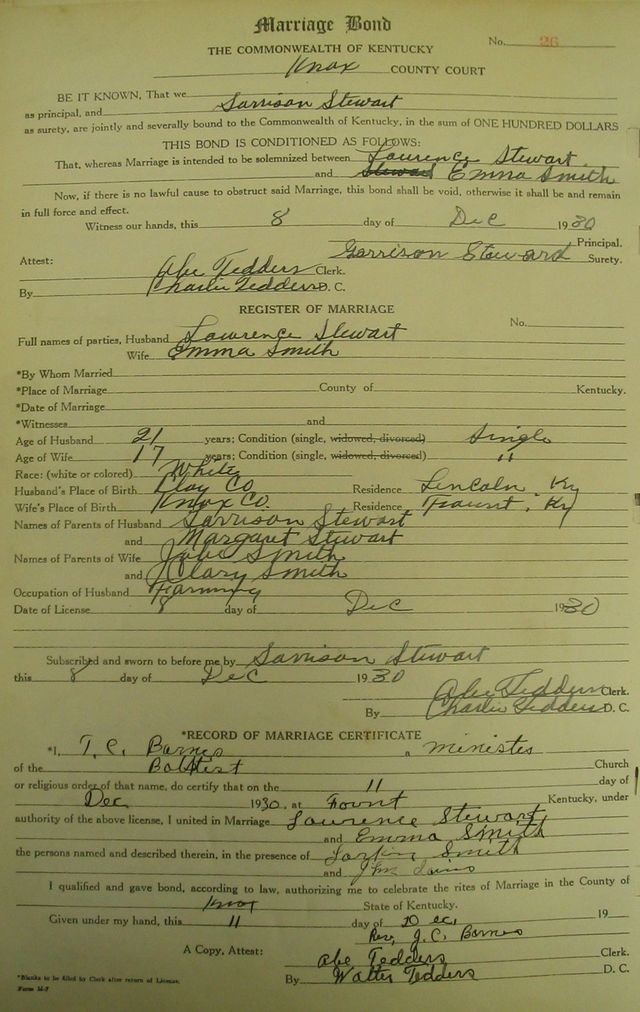 Marriage Bond
No. 26
THE COMMONWEALTH OF KENTUCKY
Knox COUNTY COURT
BE IT KNOWN, That we
as principal, and Garrison Stewart
as surety, are jointly and severally bound to the Commonwealth of Kentucky, in the sum of ONE HUNDRED DOLLARS
THIS BOND IS CONDITIONED AS FOLLOWS:
That, whereas Marriage is intended to be solemnized between Lawrence Stewart
and Emma Smith
Now, if there is no lawful cause to obstruct said Marriage, this bond shall be void, otherwise it shall be and remain
in full force and effect.
Witness our hands, this 8 day of Dec 1930
Principal.
Garrison Steward Surety.
Attest:
Abe Tedders Clerk.
By Charlie Tedders D. C.
REGISTER OF MARRIAGE
No.
Full names of parties, Husband Lawrence Stewart
Wife Emma Smith
*By Whom Married
*Place of Marriage County of Kentucky.
*Date of Marriage
*Witnesses and
Age of Husband 21 years; Condition (single, widowed, divorced) Single
Age of Wife 17 years; Condition (single, widowed, divorced) "
Race: (white or colored) White
Husband's Place of Birth Clay Co Residence Lincoln, Ky
Wife's Place of Birth Knox Co. Residence Fount, Ky
Names of Parents of Husband Garrison Stewart
and Margaret Stewart
Names of Parents of Wife Smith
and Clary Smith
Occupation of Husband Farming
Date of License 8 day of Dec 1930
Subscribed and sworn to before me by Garrison Stewart
this 8 day of Dec 1930
Abe Tedders Clerk.
By Charlie Tedders D. C.
*RECORD OF MARRIAGE CERTIFICATE
*I, Barnes a Minister
of the Baptist Church
or religious order of that name, do certify that on the 11 day of
Dec 1930, at Fount Kentucky, under
authority of the above license, I united in Marriage Lawrence Stewart
and Emma Smith
the persons named and described therein, in the presence of Smith
and
I qualified and gave bond, according to law, authorizing me to celebrate the rites of Marriage in the County of
Knox State of Kentucky.
Given under my hand, this 11 day of Dec, 19
Rev. J. C. Barnes
A Copy, Attest: Abe Tedders Clerk.
By Walter Tedders D. C.
*Blanks to be filled by Clerk after return of License.